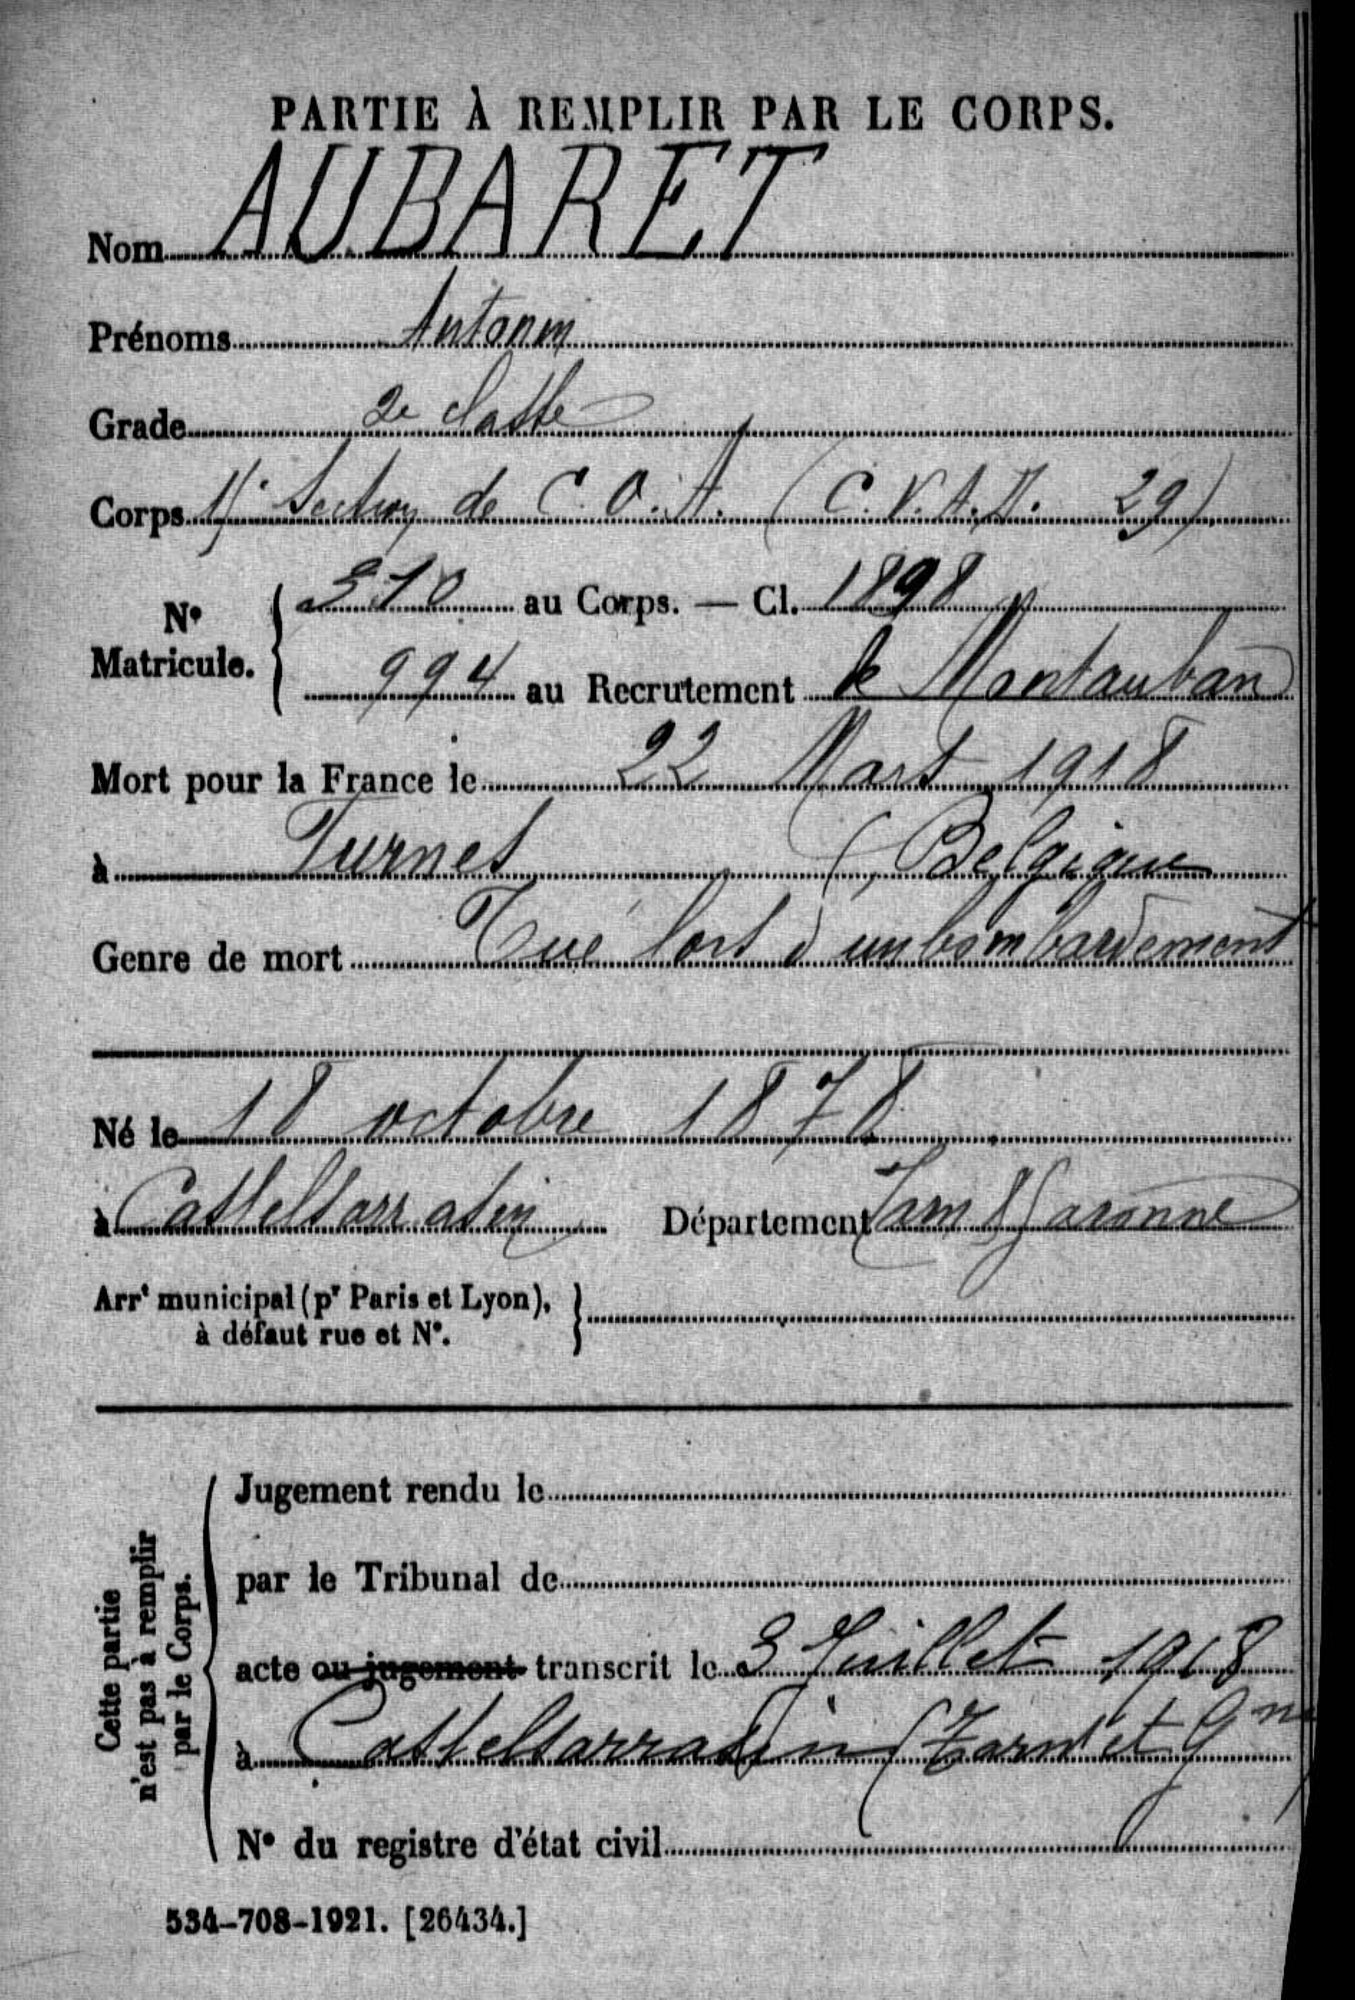 PARTIE À REMPLIR PAR LE CORPS.
Nom AUBARET
Prénoms Antonin
Grade 2e classe
Corps Section de C.O.A. (C.V.A.D. 29)
N° Matricule. 310 au Corps. — Cl. 1898
994 au Recrutement de Montauban
Mort pour la France le 22 Mars 1918
à Furnes (Belgique
Genre de mort Tué lors d'un bombardement
Né le 18 octobre 1878
à Castelsarrasin Département Tarn & Garonne
Arrt municipal (pr Paris et Lyon),
à défaut rue et N°.
Cette partie
n'est pas à remplir
par le Corps.
Jugement rendu le
par le Tribunal de
acte ou jugement transcrit le 3 Juillet 1918
à Castelsarrasin (Tarn et Gne)
N° du registre d'état civil
534-708-1921. [26434.]